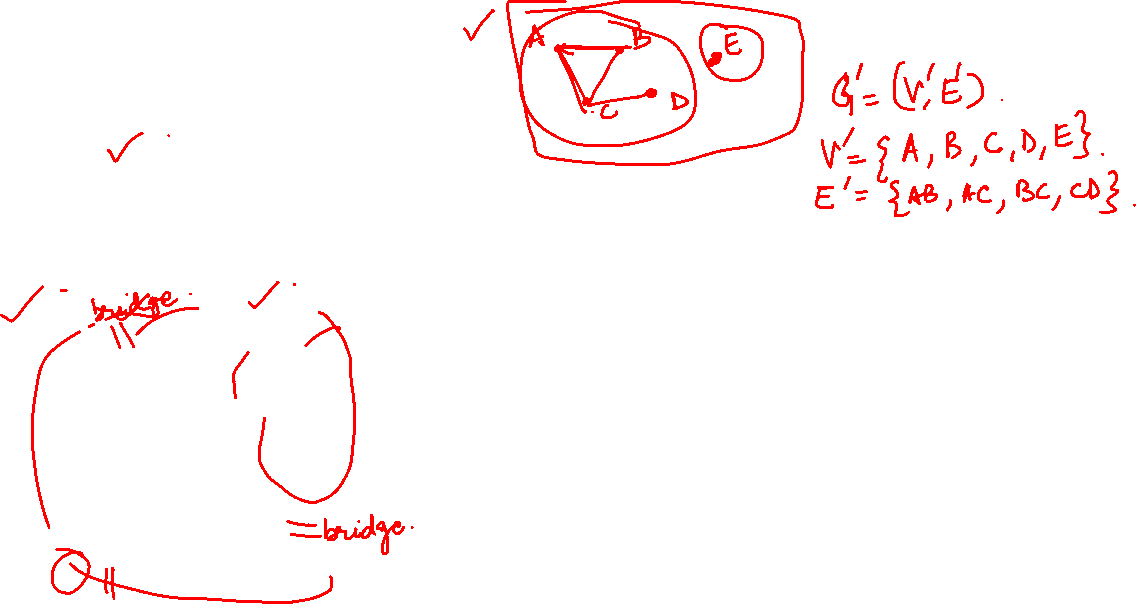 A B E
C D
G' = (V', E').
V' = {A, B, C, D, E}.
E' = {AB, AC, BC, CD}.
bridge.
bridge.